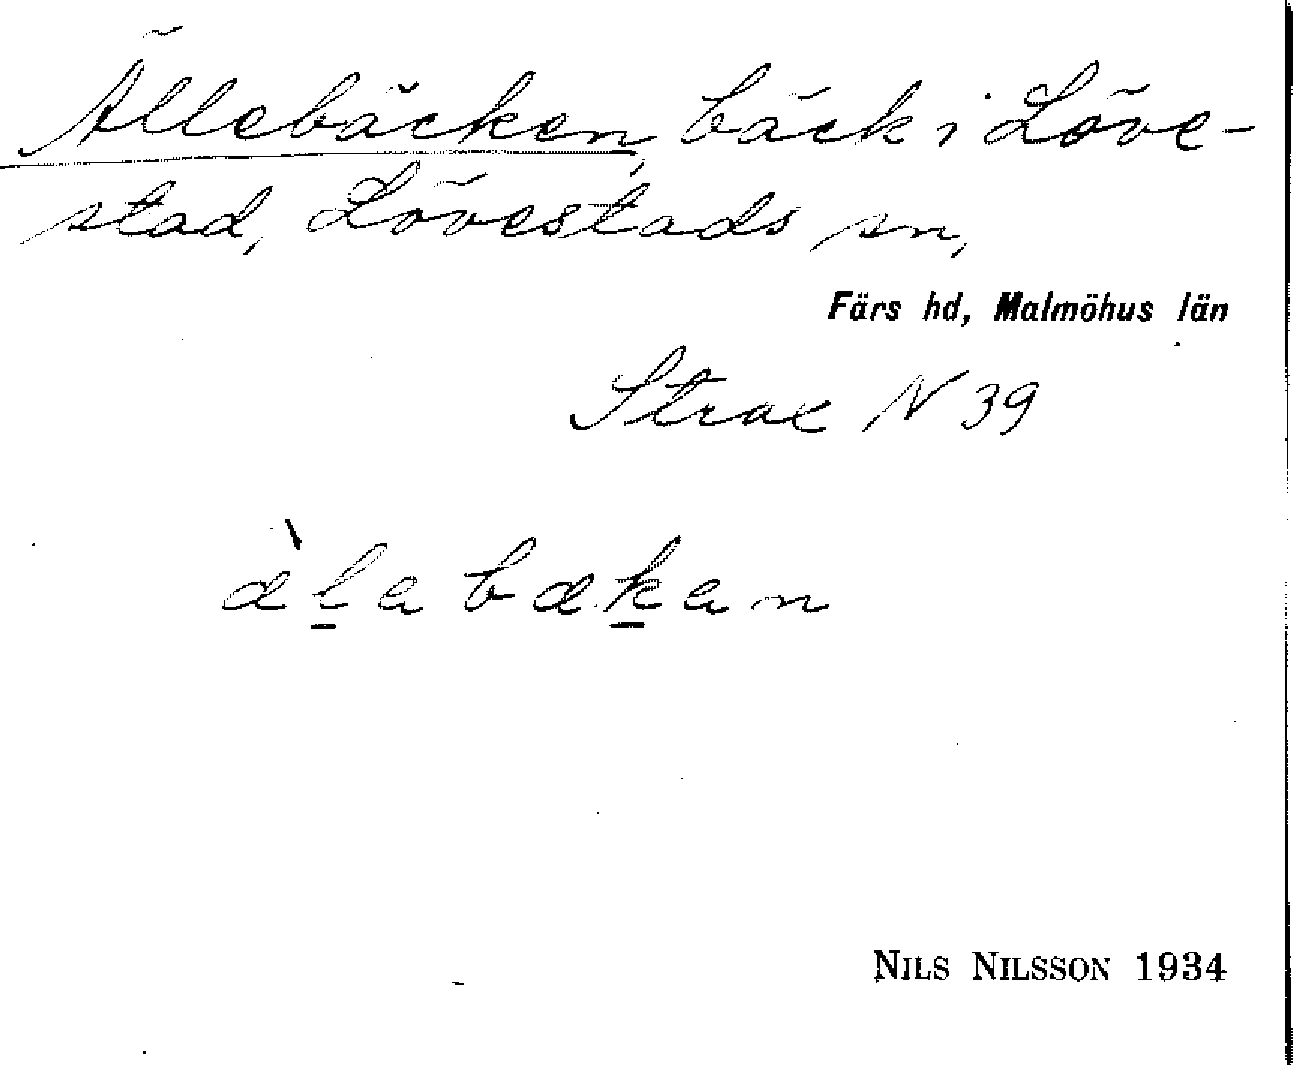 Ällebäcken, bäck i Löve-
stad, Lövestads sn,
Färs hd, Malmöhus län
Strax N 39
æ̀l̲a bæk̲an
NILS NILSSON 1934